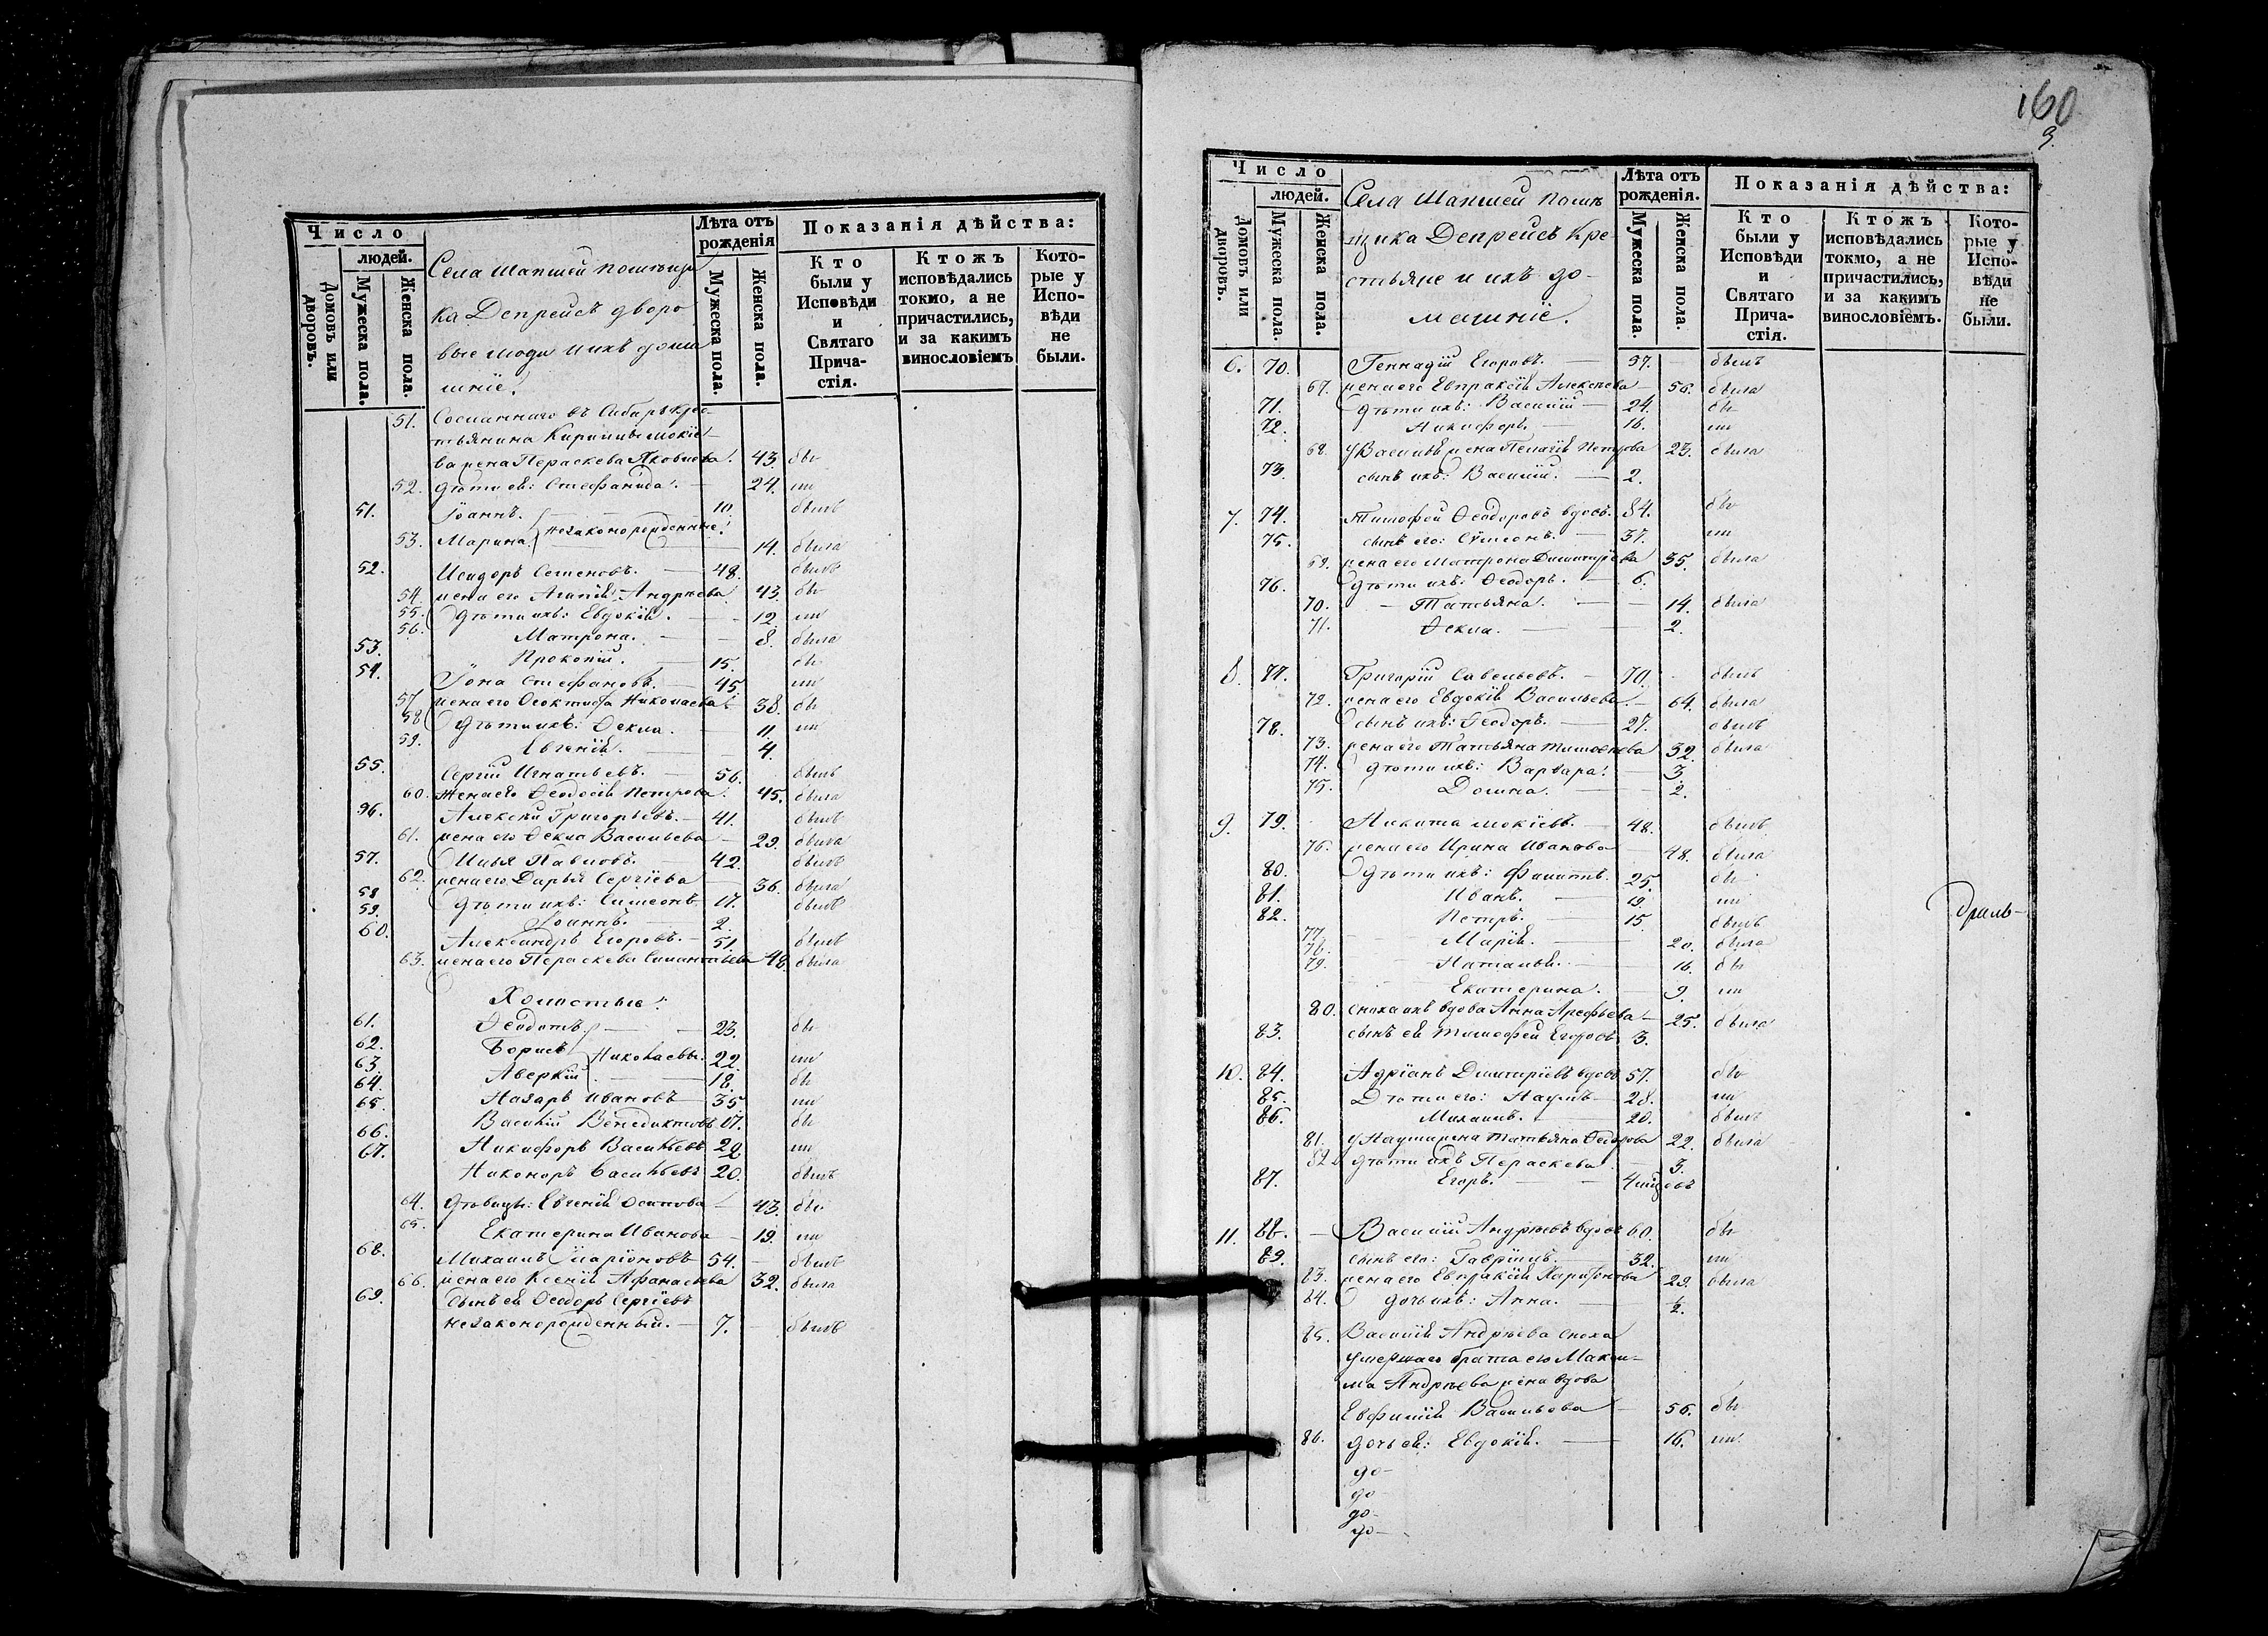 Число
людей.
Домовъ или дворовъ.
Мужеска пола.
Женска пола.
Села Шапшей помѣщи
ка Депрейсъ дворо
вые люди и ихъ дома
шніе.
Лѣта отъ рожденія
Мужеска пола.
Женска пола.
Показанія дѣйства:
Кто были у Исповѣди и Святаго Причастія.
Ктожъ исповѣдались токмо, а не причастились, и за какимъ винословіемъ
Которые у Исповѣди не были.
51. Сосланнаго въ Сибирь кре-
стьянина Кирилы Мокіе-
ва жена Параскева Яковлева. 43. бы
52. дѣти ея: Стефанида. 24. ли
51. Іоаннъ. 10. былъ
незаконорожденные.
53. Марина. 14. была
52. Исидоръ Семеновъ. 48. былъ
54. жена его Агапія Андрѣева 43. бы
55. Дѣти ихъ: Евдокія. 12. ли
56. Матрона. 8. была
53. Прокопій. 15. бы
54. Іона Стефановъ. 45. ли
57. жена его Ѳеоктиста Николаева 38. бы
58. Дѣти ихъ: Ѳекла. 11. ли
59. Евгенія. 4.
55. Сергій Игнатьевъ. 56. былъ
60. Жена его Ѳеодосія Петрова. 45. была
96. Алексѣй Григорьевъ. 41. былъ
61. жена его Ѳекла Васильева 29. была
57. Илья Павловъ. 42. былъ
62. жена его Дарья Сергіева 36. была
58. Дѣти ихъ: Симеонъ 17. былъ
59. Іоаннъ. 2.
60. Александръ Егоровъ. 51. былъ
63. жена его Параскева 48. была
Холостые:
61. Ѳеодотъ 23. бы
62. Борисъ Николаевы. 22. ли
63. Аверкій 18. бы
64. Назаръ Ивановъ 35. ли
65. Василій Венедиктовъ 67. бы
66. Никифоръ Васильевъ 22. ли
67. Никоноръ Васильевъ 20. былъ
64. Дѣвицы: Евгенія Осипова 43. бы
65. Екатерина Иванова 19. ли
68. Михаилъ Иларіоновъ 54. былъ
66. жена его Ксенія Аѳанасьева 32. была
69. Сынъ ея Ѳеодоръ Сергіевъ
незаконорожденный. 7. былъ
160
9.
Число
людей.
Домовъ или дворовъ.
Мужеска пола.
Женска пола.
Села Шапшей помѣ
щика Депрейсъ кре-
стьяне и ихъ до-
машніе.
Лѣта отъ рожденія.
Мужеска пола.
Женска пола.
Показанія дѣйства:
Кто были у Исповѣди и Святаго Причастія.
Ктожъ исповѣдались токмо, а не причастились, и за какимъ винословіемъ.
Которые у Исповѣди не были.
6. 70. Геннадій Егоровъ. 57. былъ
67. жена его Евпраксія Алексѣева 56. была
71. Дѣти ихъ: Василій 24. бы
72. Никифоръ. 16. ли
68. у Василья жена Пелагія Петрова 23. была
73. сынъ ихъ: Василій. 2.
7. 74. Тимофей Ѳеодоровъ вдовъ. 84. бы
75. сынъ его: Симеонъ. 37. ли
69. жена его Матрона Димитріева 35. была
76. Дѣти ихъ: Ѳеодоръ. 6.
70. Татьяна. 14. была
71. Ѳекла. 2.
8. 77. Григорій Савельевъ. 70. былъ
72. жена его Евдокія Васильева. 64. была
78. Сынъ ихъ: Ѳеодоръ. 27. былъ
73. жена его Татьяна Тимоѳеева 32. была
74. Дѣти ихъ: Варвара. 3.
75. Домна. 2.
9. 79. Никита Мокіевъ. 48. былъ
76. жена его Ирина Иванова 48. была
80. Дѣти ихъ: Филиппъ. 25. бы
81. Иванъ. 19. ли
82. Петръ. 15. былъ
77. Марія. 20. была
78. Наталья. 16. бы
79. Екатерина. 9. ли
80. сноха ихъ вдова Анна Арефьева 25. была
83. сынъ ея Тимофей Егоровъ 3.
10. 84. Адріанъ Димитріевъ вдовъ 57. бы
85. Дѣти его: Наумъ 28. ли
86. Михаилъ. 20. былъ
81. у Наума жена Татьяна Ѳедорова 22. была
82. дѣти ихъ Параскева. 3.
87. Егоръ. 4 мѣс
11. 88. Василій Андрѣевъ вдовъ 60. бы
89. сынъ его: Гавріилъ. 32. ли
83. жена его Евпраксія Харитонова 29. была
84. дочь ихъ: Анна. ½.
85. Василія Андрѣева сноха
умершаго брата его Макси-
ма Андрѣева жена вдова
Евфимія Васильева 56. бы
86. дочь ея: Евдокія. 16. ли.
до-
до-
до-
до-